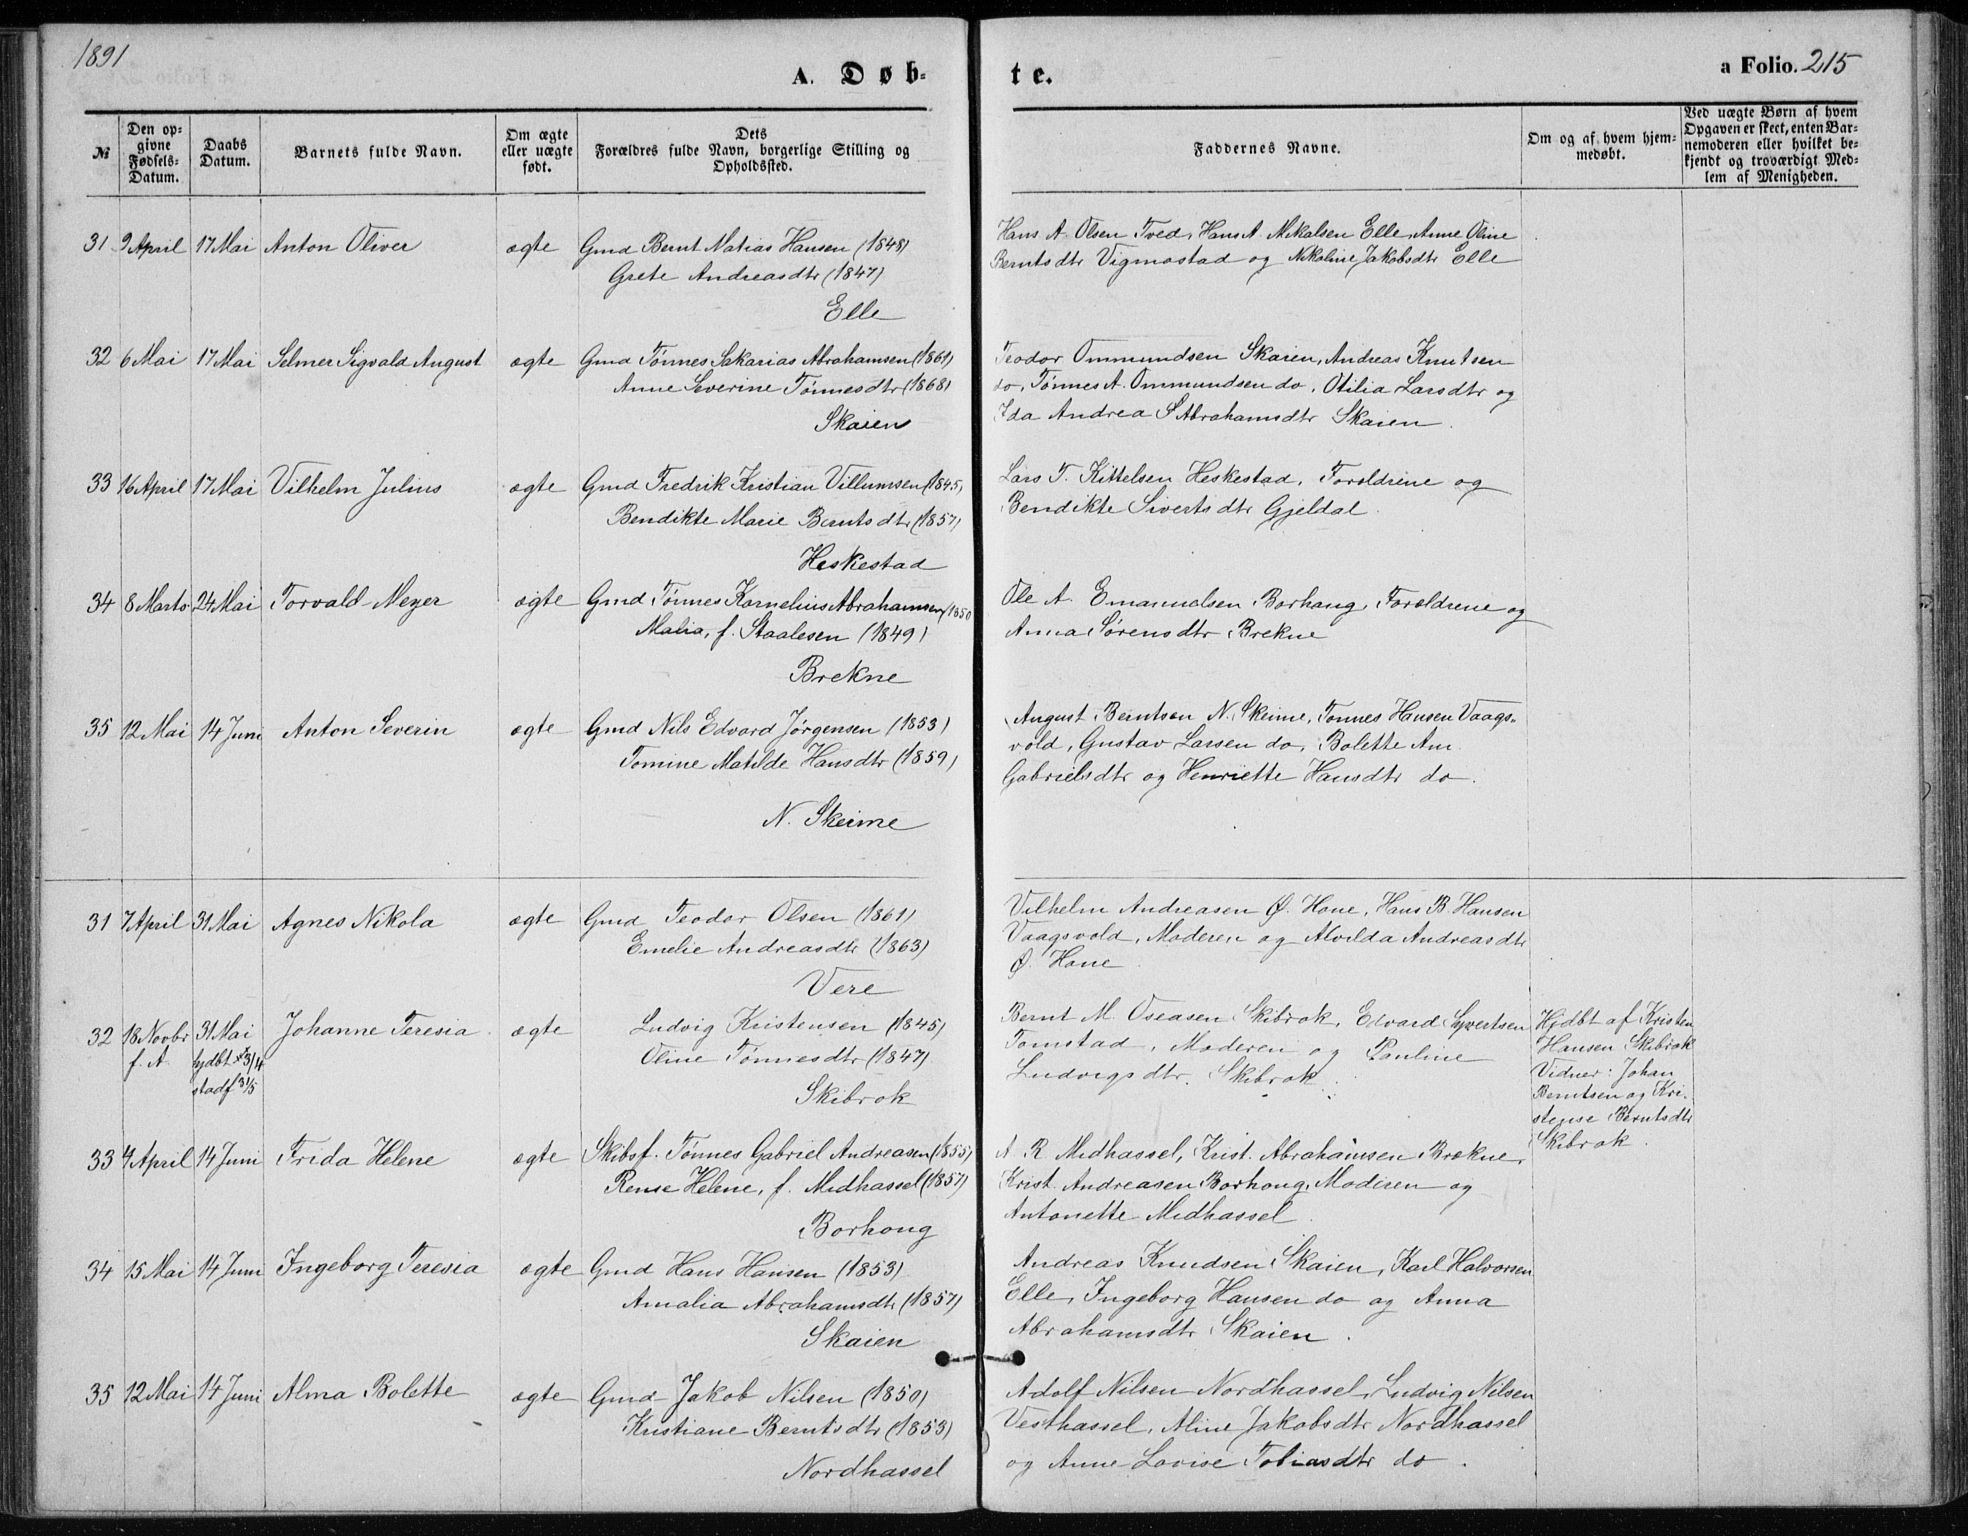 1891
A. Døb-
te.
a Folio. 215
№
Den op-
givne
Fødsels-
Datum.
Daabs
Datum.
Barnets fulde Navn.
Om ægte
eller uægte
født.
Dets
Forældres fulde Navn, borgerlige Stilling og
Opholdssted.
Faddernes Navne.
Om og af hvem hjem-
medøbt.
Ved uægte Børn af hvem
Opgaven er skeet, enten Bar-
nemoderen eller hvilket be-
kjendt og troværdigt Med-
lem af Menigheden.
31 9 April 17 Mai Anton Oliver ægte Gmd Bernt Matias Hansen (1848)
Grete Andreasdtr (1847)
Elle
Hans A. Olsen Tved, Hans A. Mikalsen Elle, Anne Oline
Berntsdtr Vigmostad og Nikoline Jakobsdtr Elle
32 6 Mai 17 Mai Selmer Sigvald August ægte Gmd Tønnes Sakarias Abrahamsen (1861)
Anne Severine Tønnesdtr (1868)
Skaien
Teodor Ommundsen Skaien, Andreas Knutsen
do, Tønnes A. Ommundsen do, Otilia Larsdtr og
Ida Andrea S Abrahamsdtr Skaien.
33 16 April 17 Mai Vilhelm Julius ægte Gmd Fredrik Kristian Villumsen (1845)
Bendikte Marie Berntsdtr (1857)
Heskestad
Lars T. Kittelsen Heskestad, Forældrene og
Bendikte Sivertsdtr Gjeldal.
34 8 Marts 24 Mai Torvald Meyer ægte Gmd Tønnes Kornelius Abrahamsen (1850
Malia, f. Staalesen (1849)
Brekne
Ole A. Emanuelsen Borhaug, Forældrene og
Anna Sørensdtr Brekne
35 12 Mai 14 Juni Anton Severin ægte Gmd Nils Edvard Jørgensen (1853)
Tomine Matilde Hansdtr (1859)
N. Skeime
August Berntsen N. Skeime, Tønnes Hansen Vaags-
vold, Gustav Larsen do, Bolette Am.
Gabrielsdtr og Henriette Hansdtr do.
31 7 April 31 Mai Agnes Nikola ægte Gmd Teodor Olsen (1861)
Emelie Andreasdtr (1863)
Vere
Vilhelm Andreasen Ø. Hone, Hans B. Hansen
Vaagsvold, Moderen og Alvilda Andreasdtr
Ø. Hone
32 18 Novbr 31 Mai Johanne Teresia ægte Ludvig Kristensen (1845)
f. A. hjdbt 3/4 Oline Tønnesdtr (1847)
stadf 31/5
Skibrok
Bernt M. Oseasen Skibrok, Edvard Syvertsen
Tomstad, Moderen og Pauline
Ludvigsdtr. Skibrok.
Hjdbt af Kristen
Hansen Skibrok
Vidner: Johan
Berntsen og Kri-
stense Berntsdtr
Skibrok.
33 4 April 14 Juni Frida Helene ægte Skibsf. Tønnes Gabriel Andreasen (1855)
Rense Helene, f. Midhassel (1857)
Borhoug
A. R. Midhassel, Krist. Abrahamsen Brekne,
Krist. Andreasen Borhoug, Moderen og
Antonette Midhassel
34 15 Mai 14 Juni Ingeborg Teresia ægte Gmd Hans Hansen (1853)
Amalia Abrahamsdtr (1857)
Skaien
Andreas Knudsen Skaien, Karl Halvorsen
Elle, Ingeborg Hansen do og Anna
Abrahamsdtr Skaien.
35 12 Mai 14 Juni Alma Bolette ægte Gmd Jakob Nilsen (1850)
Kristiane Berntsdtr (1853)
Nordhassel
Adolf Nilsen Nordhassel, Ludvig Nilsen
Vesthassel, Aline Jakobsdtr Nordhassel
og Anne Lovise Tobiasdtr do.